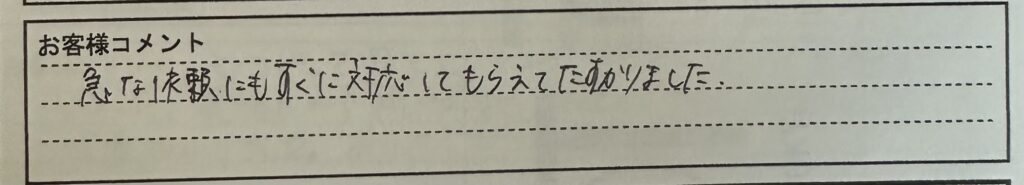 お客様コメント
急な依頼にもすぐに対応してもらえてたすかりました.